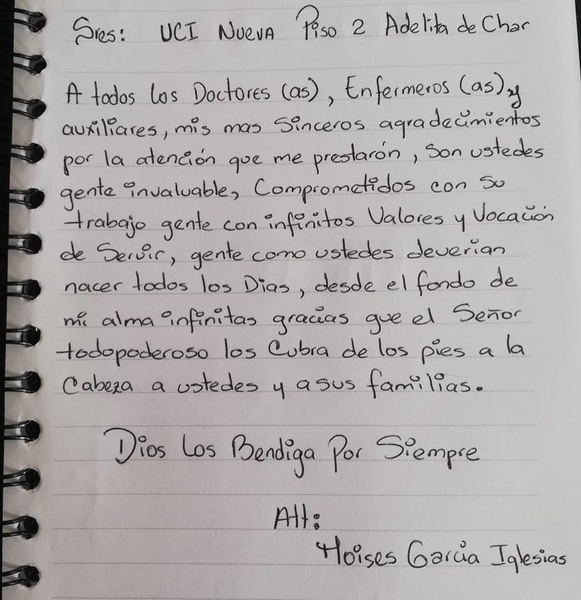 Sres: UCI Nueva Piso 2 Adelita de Char
A todos los Doctores (as), Enfermeros (as) y
auxiliares, mis mas Sinceros agradecimientos
por la atención que me prestarón, Son ustedes
gente invaluable, Comprometidos con su
trabajo gente con infinitos Valores y Vocación
de Servir, gente como ustedes deverian
nacer todos los Dias, desde el fondo de
mi alma infinitas gracias que el Señor
todopoderoso los Cubra de los pies a la
Cabeza a ustedes y a sus familias.
Dios Los Bendiga Por Siempre
Att:
Moises Garcia Iglesias